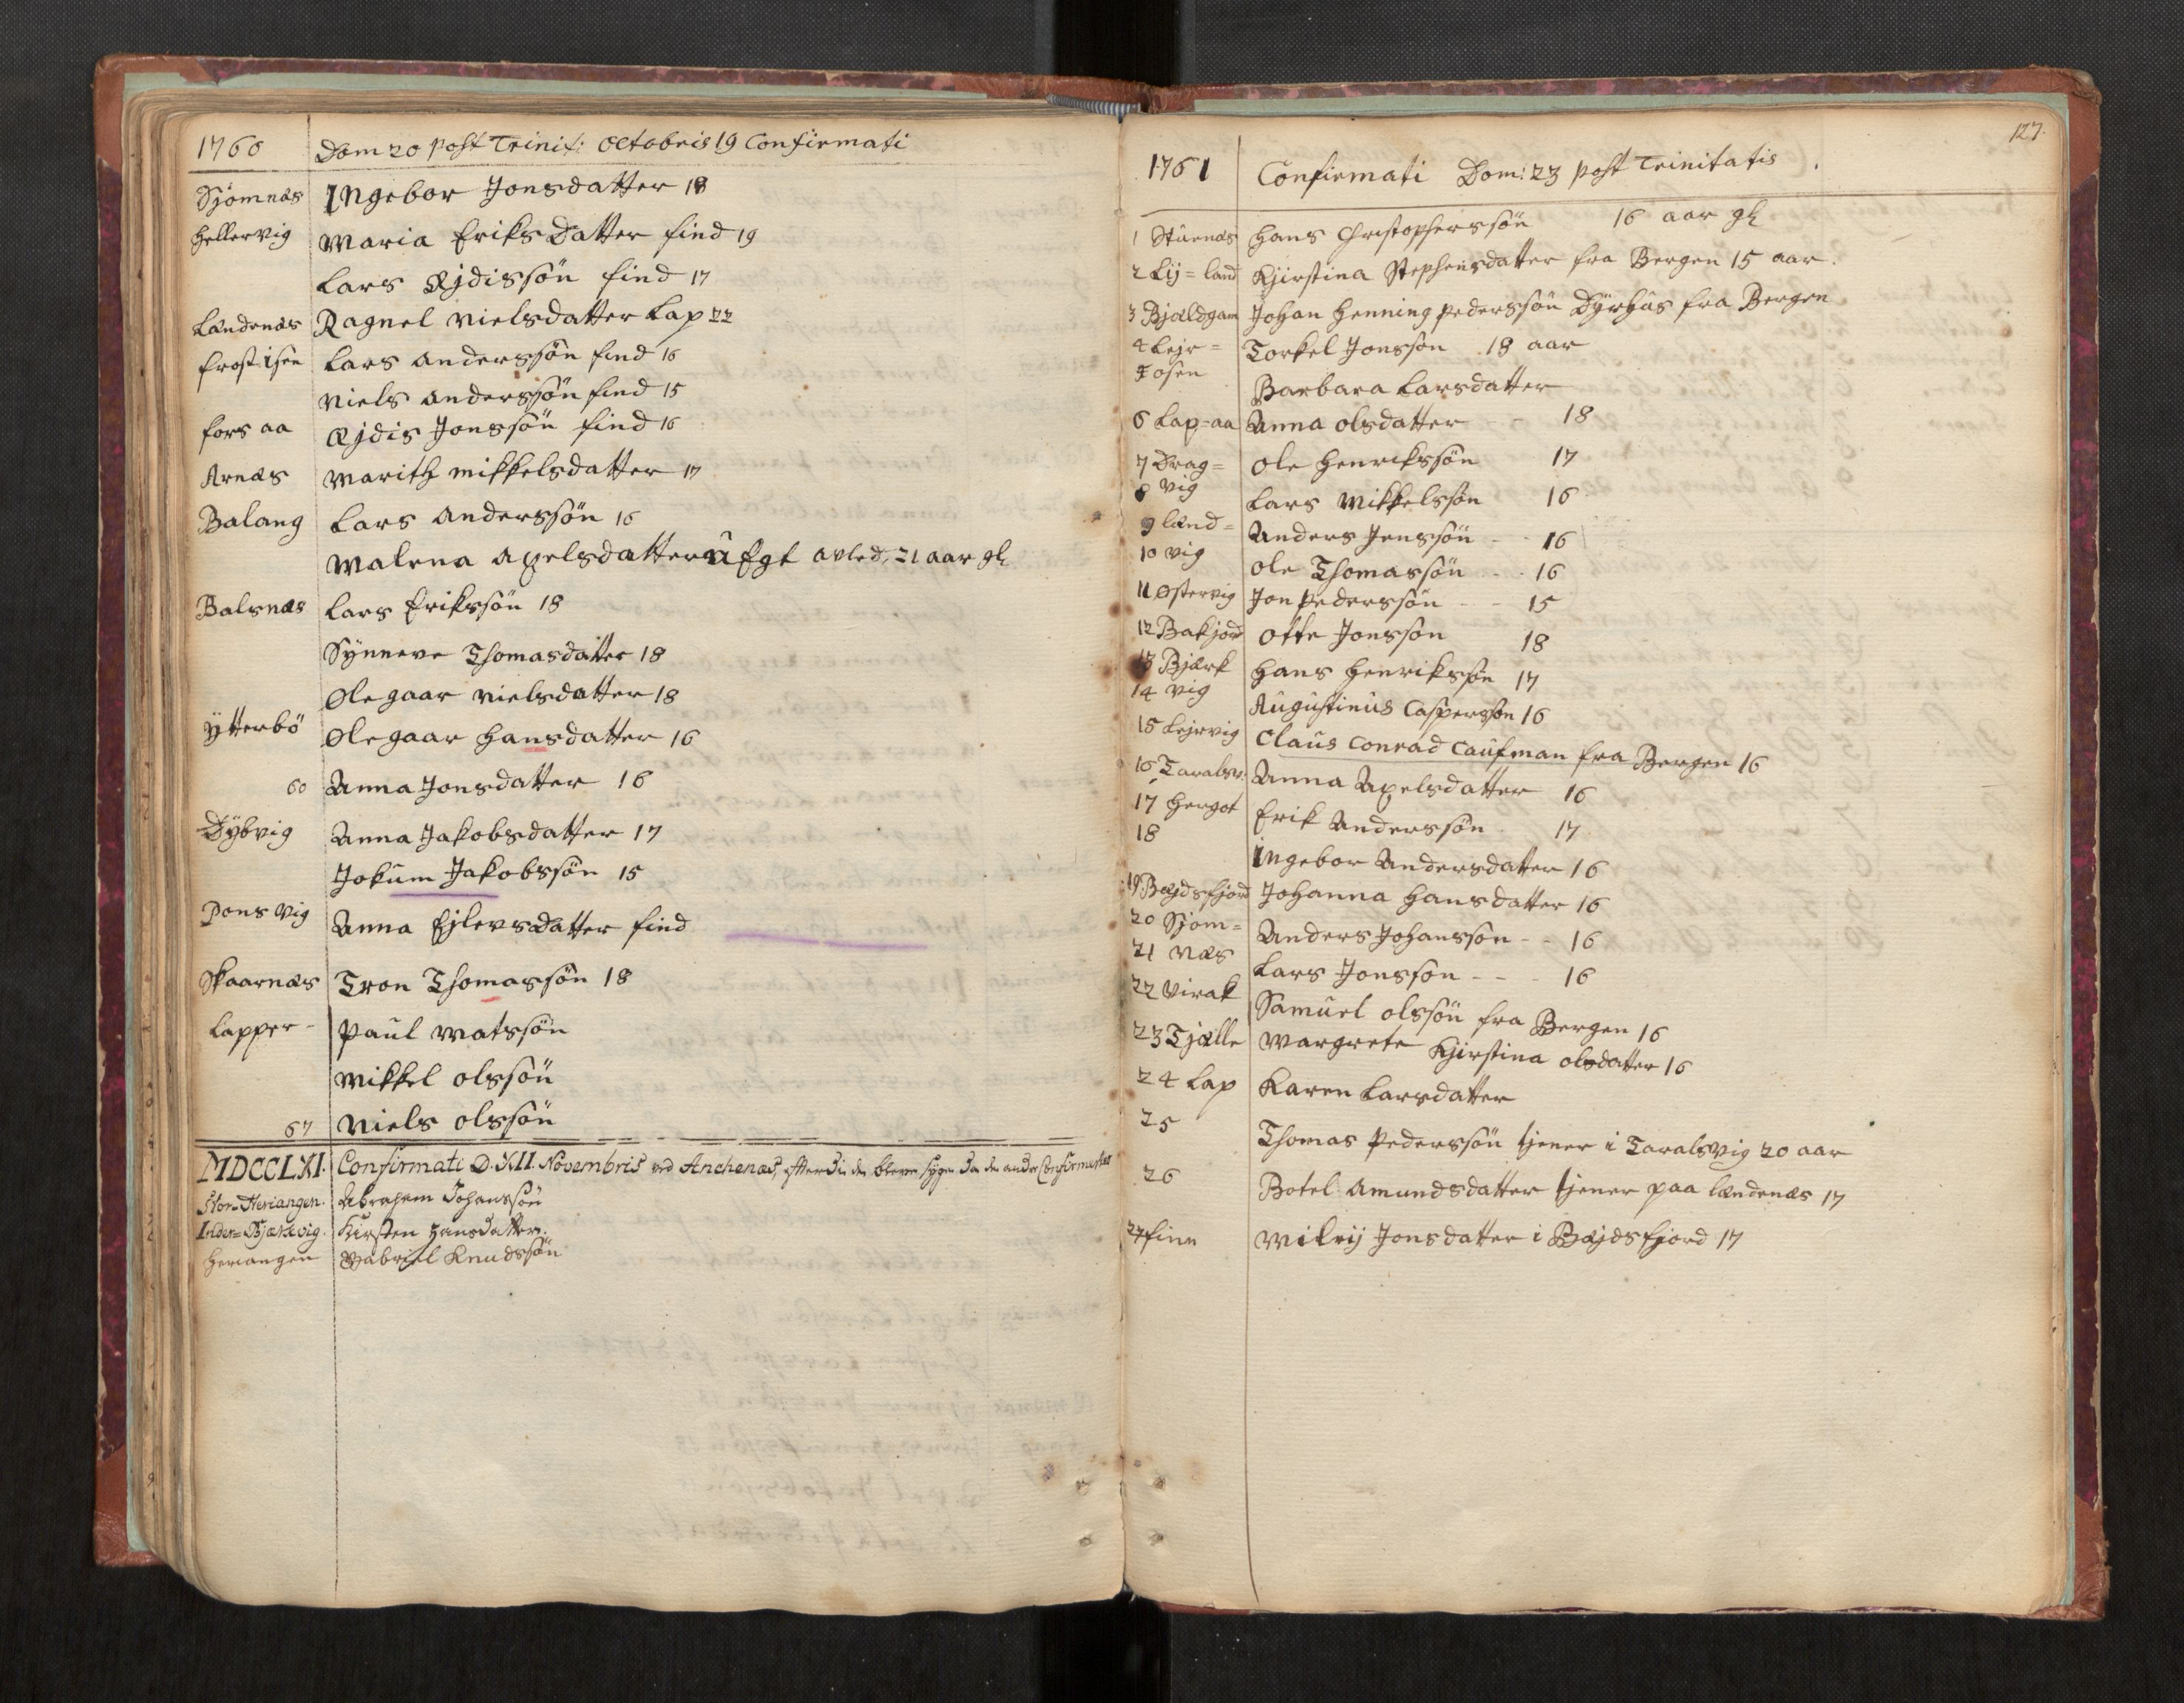 1760 Dom 20 post Trinit: Octobris 19 Confirmati
Sjomnæs Ingebor Jonsdatter 18
Hellervig Maria Eriks Datter find 19
Lars Ejdissön find 17
Lændenæs Ragnel Nielsdatter Lap 22
Frostisen Lars Anderssön find 16
Niels Anderssön find 15
Fors aa Ejdis Jonssön find 16
Arnæs Marith Mikkelsdatter 17
Balang Lars Anderssön 16
Malena Axelsdatter uEgt avled, 21 aar gl
Balsnæs Lars Erikssön 18
Synneve Thomasdatter 18
Olegaar Nielsdatter 18
Ytterbö Olegaar Hansdatter 16
60 Anna Jonsdatter 16
Dybvig Anna Jakobsdatter 17
Jokum Jakobssön 15
Pons vig Anna Ejlevsdatter find
Skaarnæs Tron Thomassön 18
Lapper- Paul Matssön
Mikkel Olssön
67 Niels Olssön
MDCCLXI. Confirmati D. XII. Novembris ved Anchenæs, efterdi de bleve syge da de andre Confirmertes
Stor-Heriangen. Abraham Johanssön
Inder-Bjerkvig. Kirsten Hansdatter.
Heriangen Gabriel Knudssön
127.
1761 Confirmati Dom: 23 post Trinitatis
1 Stuenæs Hans Christopherssön 16 aar gl
2 Lij=land Kjirstina Stephensdatter fra Bergen 15 aar.
3 Bjældgam Johan Henning Pederssön Dyrhus fra Bergen
4 Lejr= Torkel Jonsson 18 aar
5 osen Barbara Larsdatter
6 Lap-aa Anna Olsdatter - - 18
7 Drag= Ole Henrikssön 17
8 vig Lars Mikkelssön 16
9 Lænd= Anders Jenssön - - 16
10 vig Ole Thomassön - - 16
11 Østervig Jon Pederssön - - 15
12 Bakjord Otte Jonsson 18
13 Bjærk Hans Henrikssön 17
14 vig Augustinus Casperssön 16
15 Lejrvig Claus Conrad Caufman fra Bergen 16
16 Taralsv. Anna Axelsdatter 16
17 Hergot Erik Anderssön 17
18 Ingebor Andersdatter 16
19 Bejdsfjord Johanna Hansdatter 16
20 Sjom= Anders Johansson - - 16
21 næs Lars Jonssön - - - 16
22 Virak Samuel Olssön fra Bergen 16
23 Tjælle Margrete Kjirstina Olsdatter 16
24 Lap Karen Larsdatter
25 Thomas Pederssön tjener i Taralsvig 20 aar
26 Botel Amundsdatter tjener paa Lændenæs 17
27 finn Milrij Jonsdatter i Bejdsfjord 17